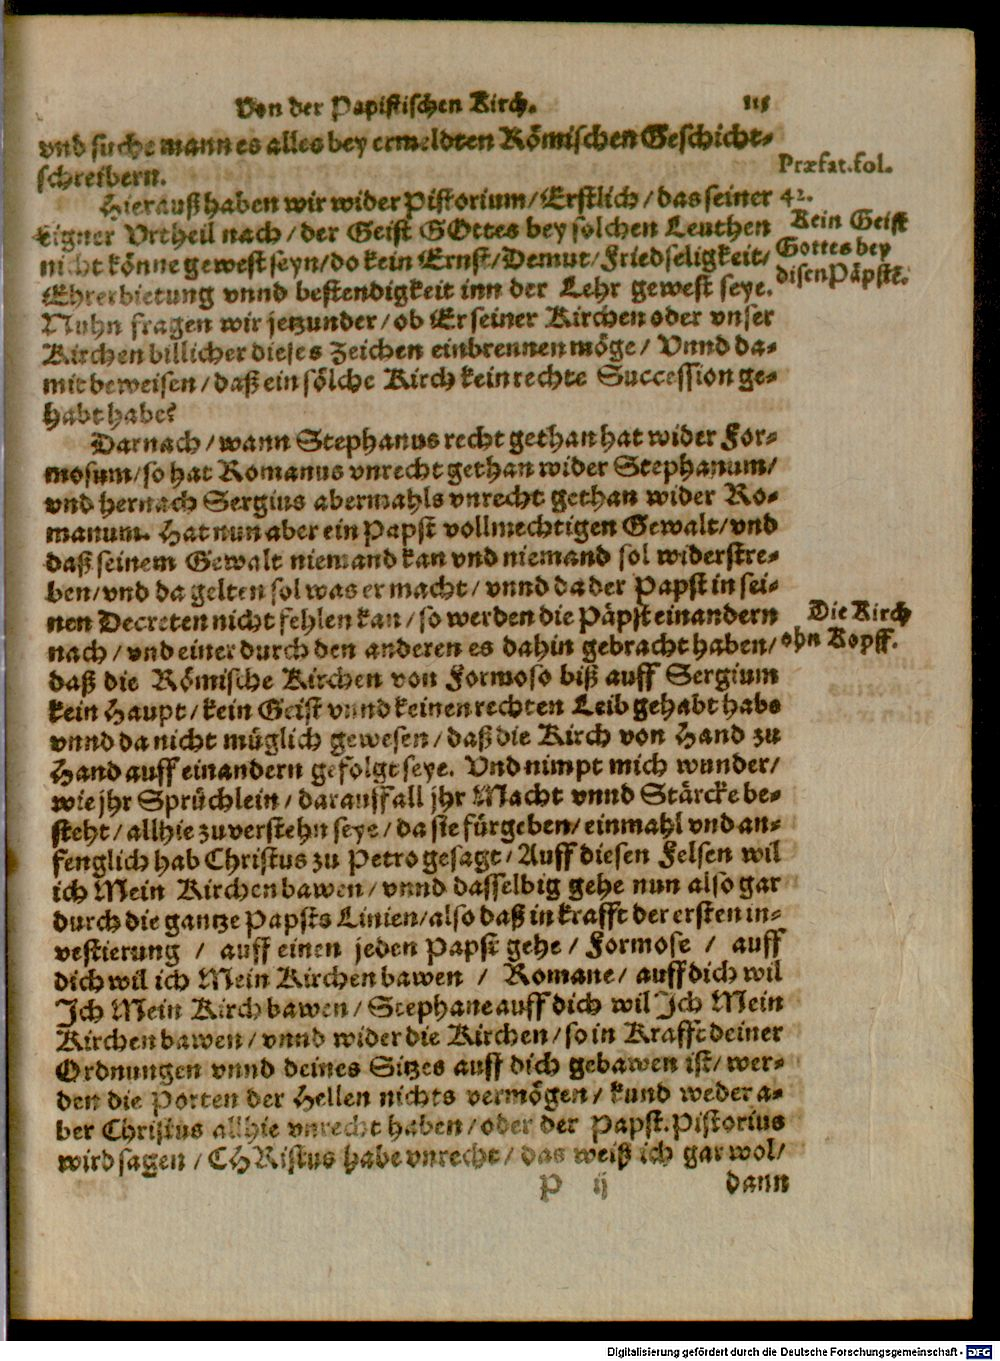 Von der Papistischen Kirch. 115
vnd suche mann es alles bey ermeldten Römischen Geschicht-
schreibern.
Præfat. fol.
42.
Hierauß haben wir wider Pistorium/ Erstlich/ das seiner
eigner Vrtheil nach/ der Geist GOttes bey solchen Leuthen
nicht könne gewest seyn/ do kein Ernst/ Demut/ Friedseligkeit/
Ehrerbietung vnnd bestendigkeit inn der Lehr gewest seye.
Kein Geist
Gottes bey
disen Päpstt.
Nuhn fragen wir jetzunder/ ob Er seiner Kirchen oder vnser
Kirchen billicher dieses Zeichen einbrennen möge/ Vnnd da-
mit beweisen/ daß ein sölche Kirch kein rechte Succession ge-
habt habe?
Darnach/ wann Stephanus recht gethan hat wider For-
mosum/ so hat Romanus vnrecht gethan wider Stephanum/
vnd hernach Sergius abermahls vnrecht gethan wider Ro-
manum. Hat nun aber ein Papst vollmechtigen Gewalt/ vnd
daß seinem Gewalt niemand kan vnd niemand sol widerstre-
ben/ vnd da gelten sol was er macht/ vnnd da der Papst in sei-
nen Decreten nicht fehlen kan/ so werden die Päpst einandern
nach/ vnd einer durch den anderen es dahin gebracht haben/
Die Kirch
ohn Kopff.
daß die Römische Kirchen von Formoso biß auff Sergium
kein Haupt/ kein Geist vnnd keinen rechten Leib gehabt habe
vnnd da nicht müglich gewesen/ daß die Kirch von Hand zu
Hand auff einandern gefolgt seye. Vnd nimpt mich wunder/
wie jhr Sprüchlein/ darauff all jhr Macht vnnd Stärcke be-
steht/ allhie zuverstehn seye/ da sie fürgeben/ einmahl vnd an-
fenglich hab Christus zu Petro gesagt/ Auff diesen Felsen wil
ich Mein Kirchen bawen/ vnnd dasselbig gehe nun also gar
durch die gantze Papsts Linien/ also daß in krafft der ersten in-
vestierung / auff einen jeden Papst gehe/ Formose / auff
dich wil ich Mein Kirchen bawen / Romane/ auff dich wil
Ich Mein Kirch bawen/ Stephane auff dich wil Ich Mein
Kirchen bawen/ vnnd wider die Kirchen/ so in Krafft deiner
Ordnungen vnnd deines Sitzes auff dich gebawen ist/ wer-
den die Porten der Hellen nichts vermögen/ kund weder a-
ber Christus allhie vnrecht haben/ oder der Papst. Pistorius
wird sagen/ CHRistus habe vnrecht/ das weiß ich gar wol/
P ij dann
Digitalisierung gefördert durch die Deutsche Forschungsgemeinschaft - DFG